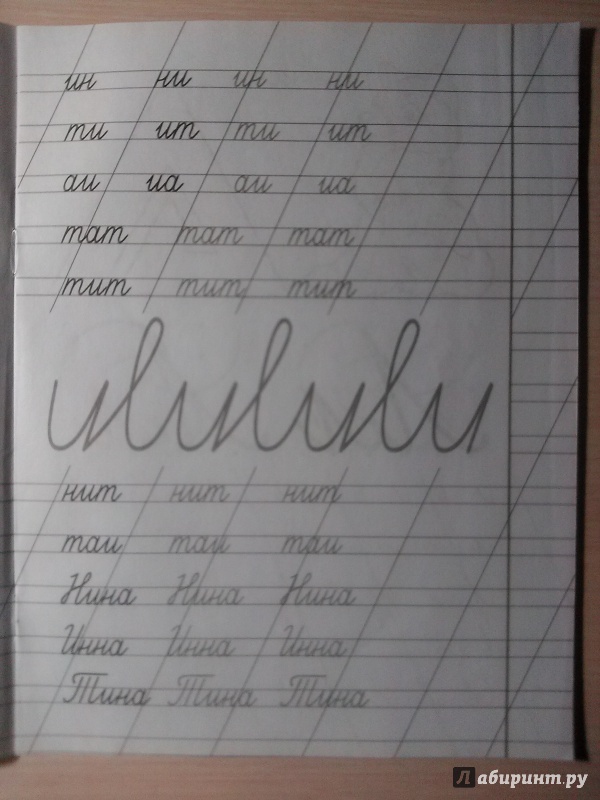 ин ни ин ни
ти ит ти ит
аи иа аи иа
тат тат тат
тит тит тит
нит нит нит
таи таи таи
Нина Нина Нина
Инна Инна Инна
Тина Тина Тина
Лабиринт.ру